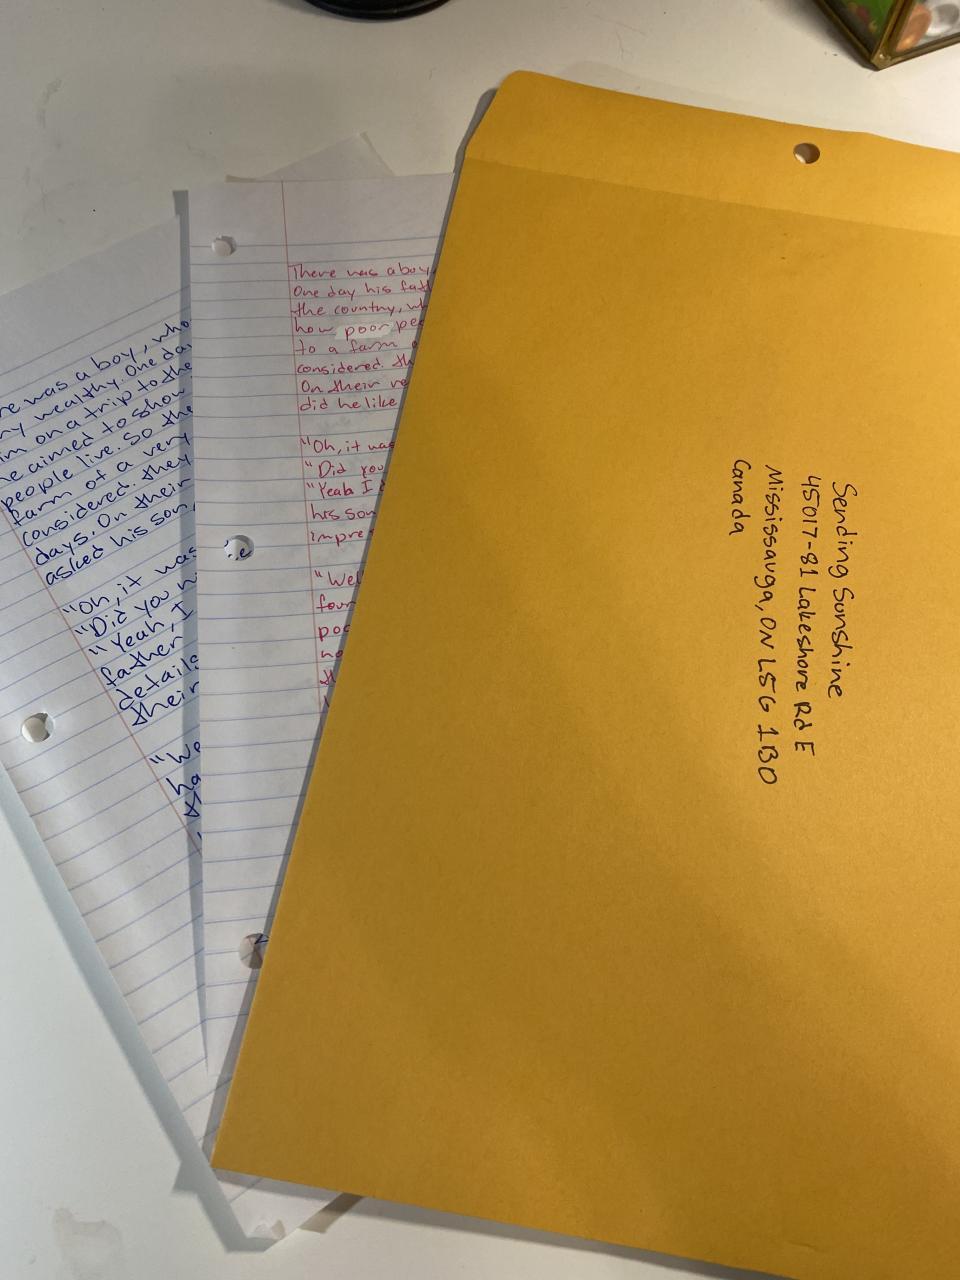 re was a boy, who
ny wealthy. One da
im on a trip to the
he aimed to show
people live. So the
farm of a very
considered. they
days. On their
asked his son,
"Oh, it was
"Did you n
"Yeah, I
father
details
their
"We
ha
There was a boy,
One day his fat
the country, wh
how poor pe
to a farm o
considered. th
On their re
did he like
"Oh, it was
"Did you
"Yeah I d
his son
impre
"Wel
four
poo
ha
th
Sending Sunshine
45017-81 Lakeshore Rd E
Mississauga, ON L5G 1B0
Canada